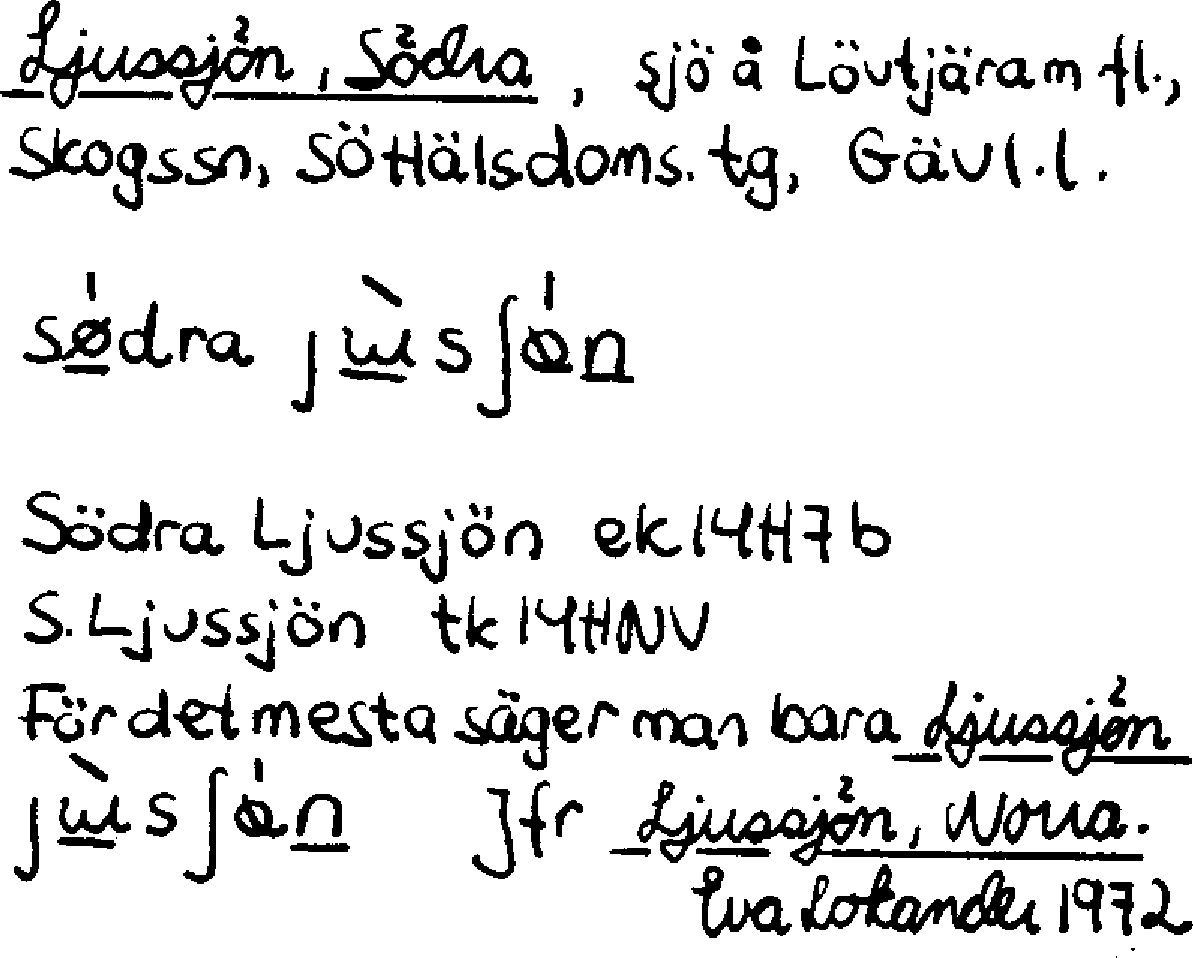 Ljussjön, Södra, sjö å Lövtjäram fl.,
Skogssn, SöHälsdoms. tg, Gävl.l.
södra
Södra Ljussjön ek14H7b
S. Ljussjön tk14HNV
För det mesta säger man bara Ljussjön
Jfr Ljussjön, Norra.
Eva Lokander 1972